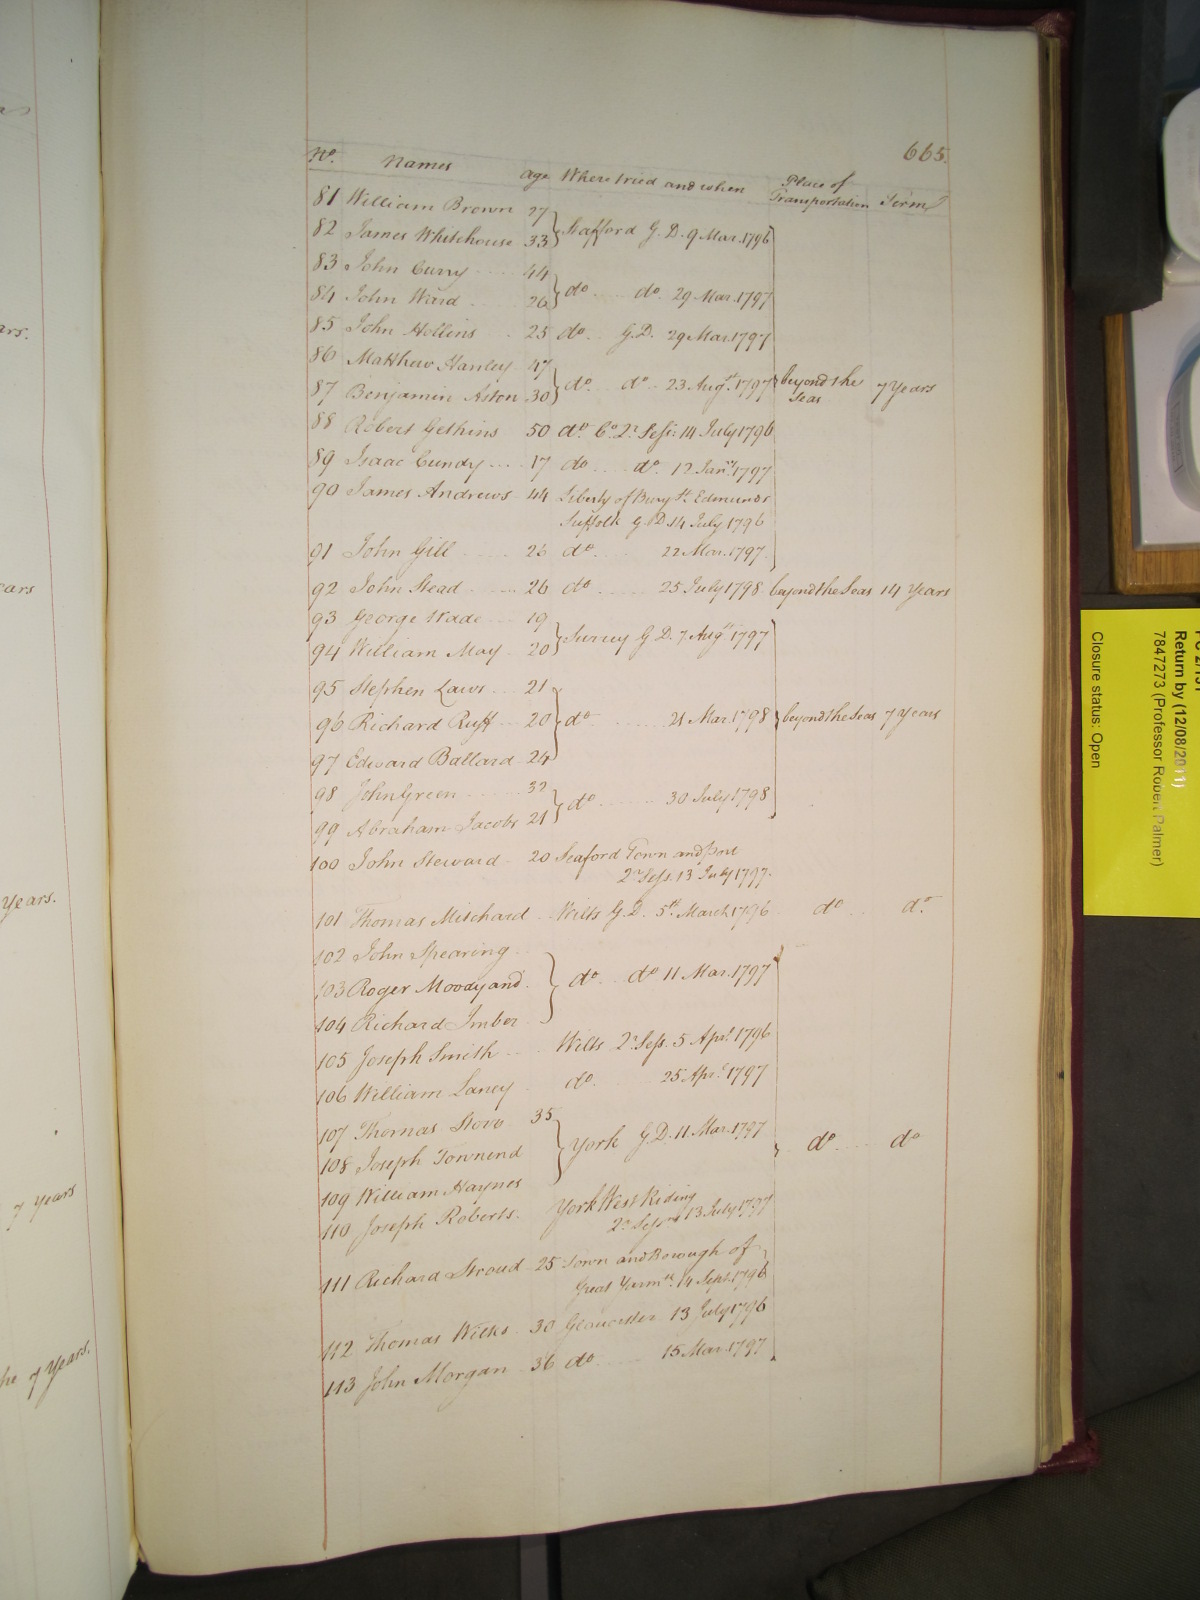 665.
No. Names age Where tried and when Place of Transportation Term
81 William Brown 27
82 James Whitehouse 33 } Stafford G.D. 9 Mar. 1796
83 John Curry 44
84 John Ward 26 } do do 29 Mar. 1797
85 John Hollins 25 do G.D. 29 Mar. 1797
86 Matthew Hanley 47
87 Benjamin Aston 30 } do do 23 Augst. 1797 } beyond the Seas 7 Years
88 Robert Gethins 50 do Co. 2r. Sess: 14 July 1796
89 Isaac Cundy 17 do do 12 Jany. 1797
90 James Andrews 44 Liberty of Bury St. Edmunds
Suffolk G.D. 14 July 1796
91 John Gill 26 do 22 Mar. 1797
92 John Stead 26 do 25 July 1798 beyond the Seas 14 Years
93 George Wade 19
94 William May 20 } Surrey G.D. 7 Augst 1797
95 Stephen Laws 21
96 Richard Ruff 20 } do 21 Mar. 1798 } beyond the Seas 7 Years
97 Edward Ballard 24
98 John Green 32
99 Abraham Jacobs 21 } do 30 July 1798
100 John Steward 20 Seaford Town and Port
2r Sess. 13 July 1797.
101 Thomas Mitchard Wilts G.D. 5th. March 1796 do do.
102 John Spearing
103 Roger Moody and } do do 11 Mar. 1797
104 Richard Imber
105 Joseph Smith Wilts 2r. Sess. 5 Apr. 1796
106 William Laney do 25 Apr. 1797
107 Thomas Stovo 35
108 Joseph Townend } York G.D. 11 Mar. 1797 do do
109 William Haynes
110 Joseph Roberts York West Riding
2r Sessns 13 July 1797
111 Richard Stroud 25 Town and Borough of
Great Yarmth. 14 Sept. 1796
112 Thomas Wicks 30 Gloucester 13 July 1796
113 John Morgan 36 do 15 Mar. 1797
ars.
ears
Years.
7 Years
he 7 Years.
Return by (12/08/2011)
7847273 (Professor Robert Palmer)
Closure status: Open